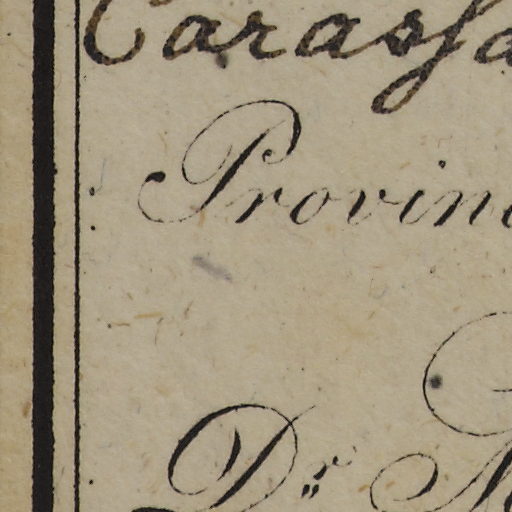 Carassa
Provinc
Dr